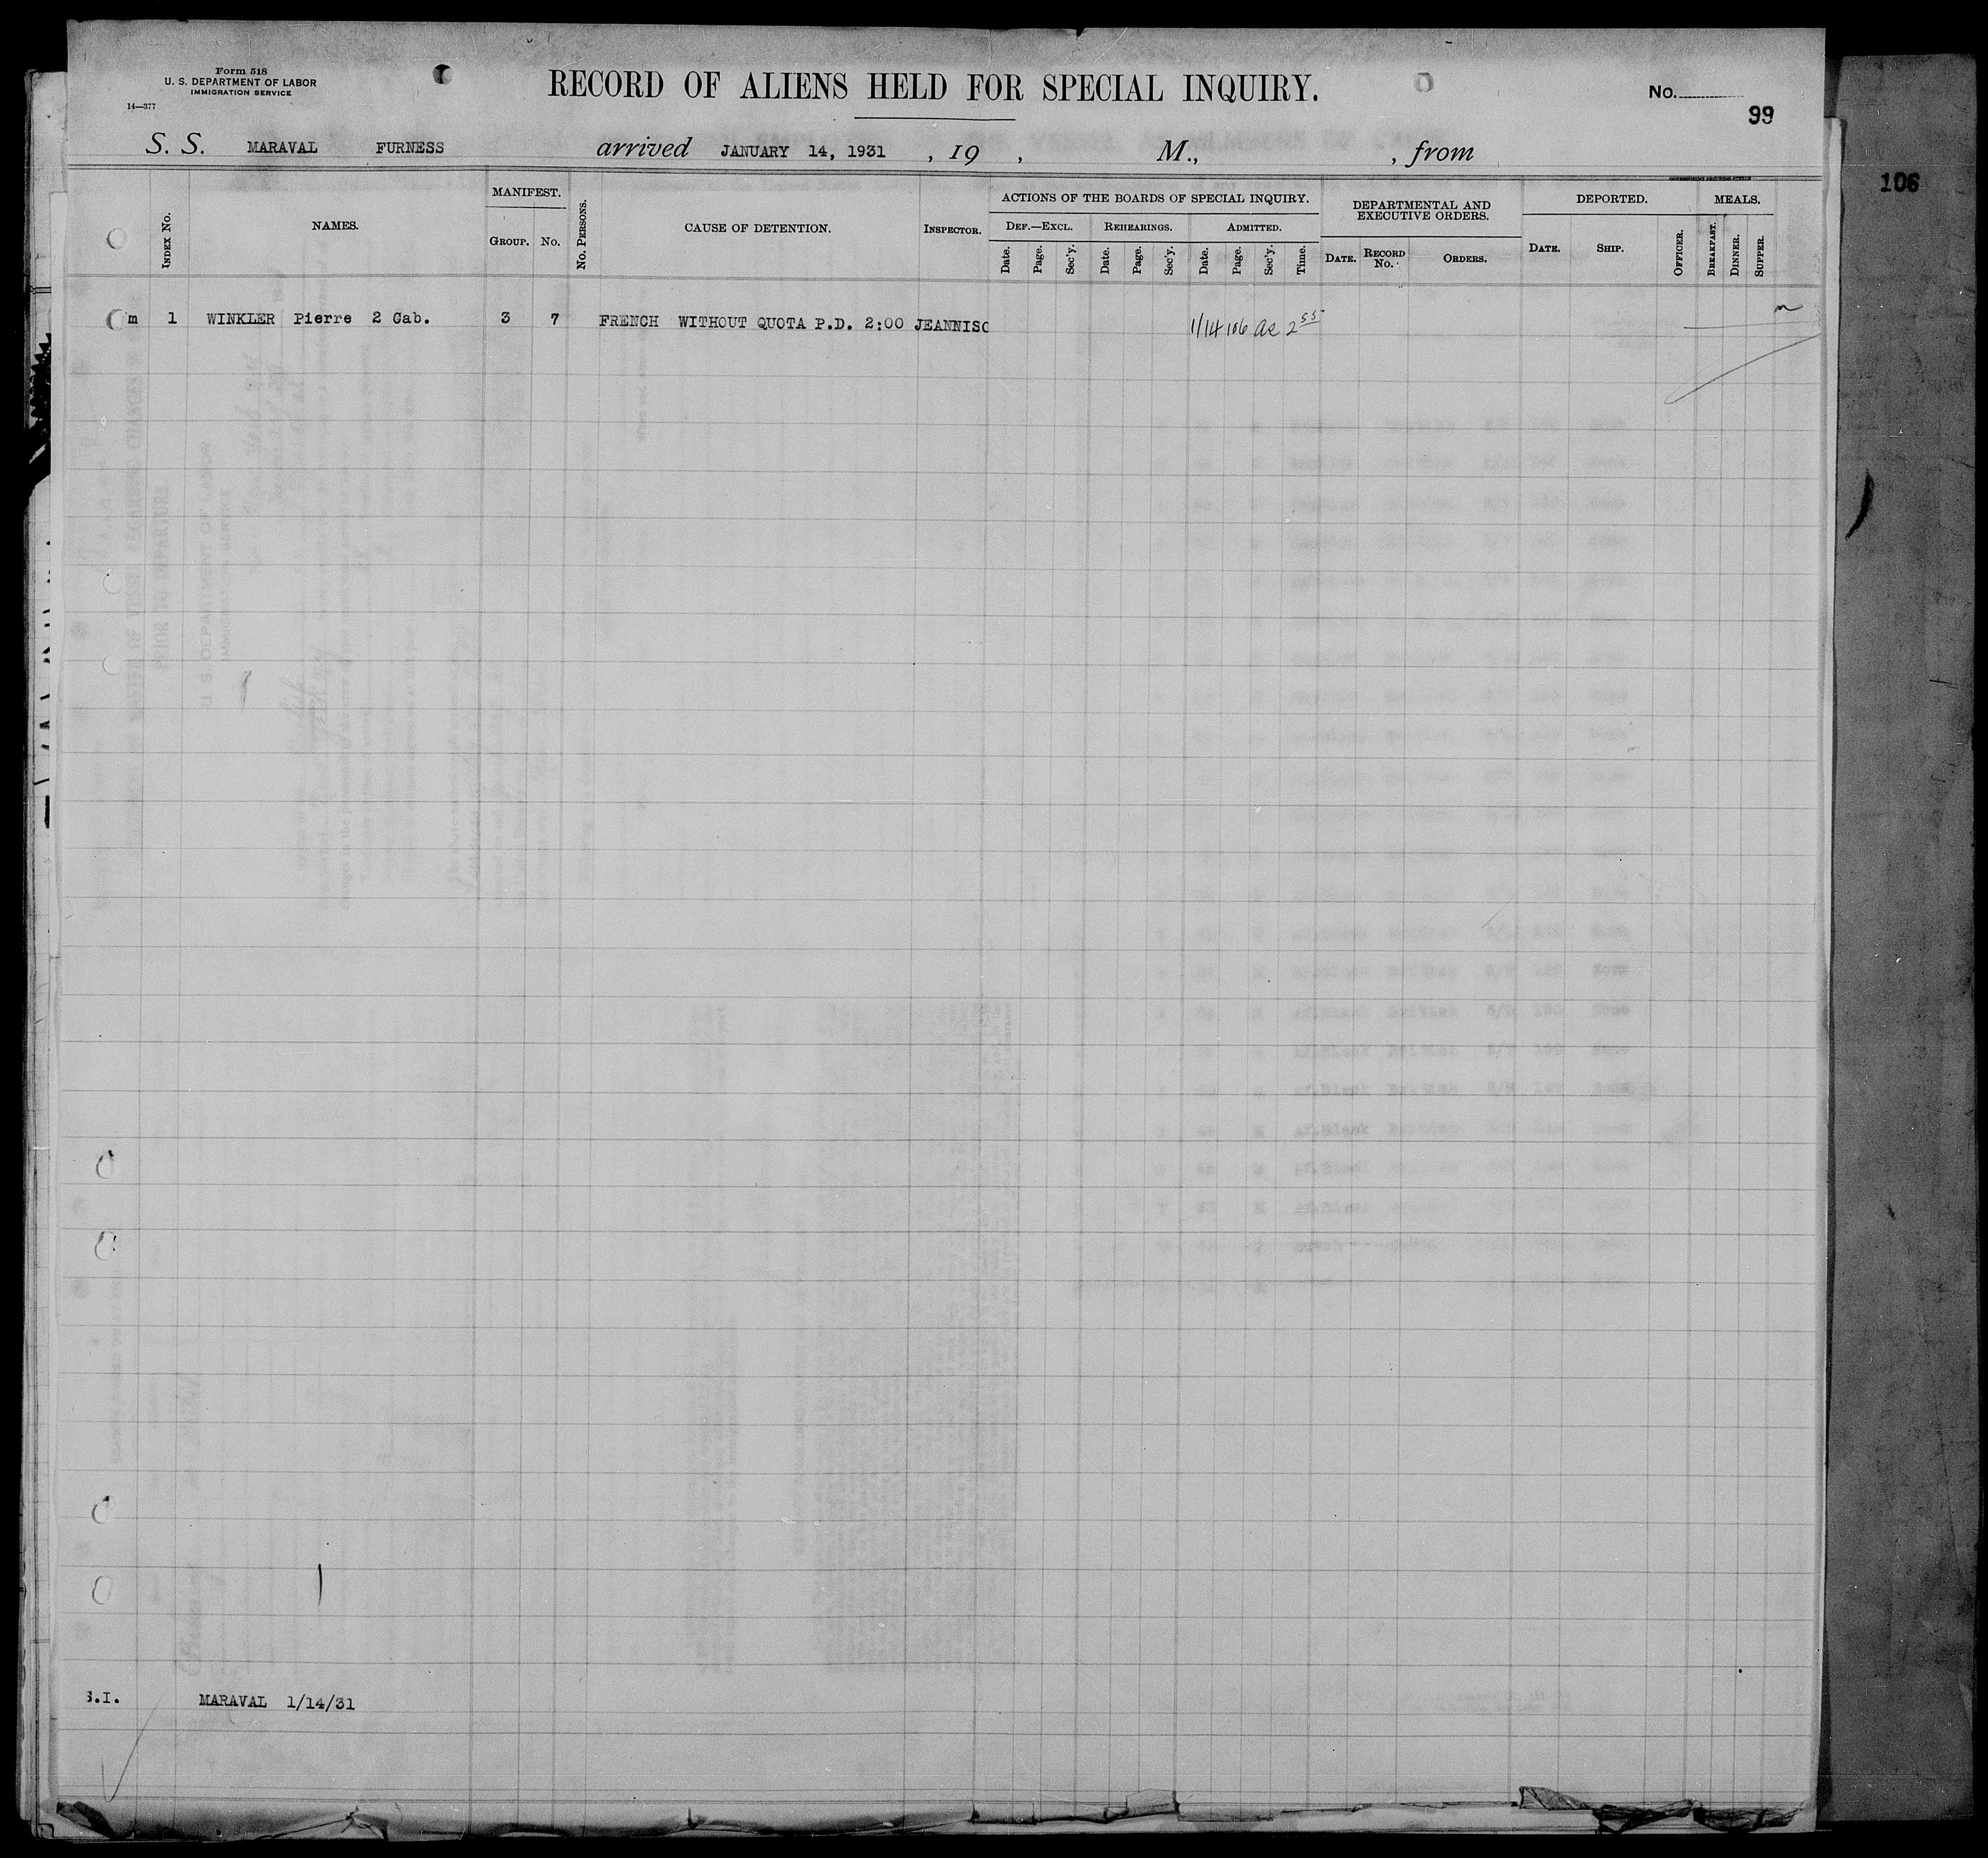 Form 518
U. S. DEPARTMENT OF LABOR
IMMIGRATION SERVICE
14—377
RECORD OF ALIENS HELD FOR SPECIAL INQUIRY.
No.
99
106
S. S. MARAVAL FURNESS arrived JANUARY 14, 1931 , 19 , M., , from
INDEX No. NAMES. MANIFEST. GROUP. No. No. PERSONS. CAUSE OF DETENTION. INSPECTOR.
ACTIONS OF THE BOARDS OF SPECIAL INQUIRY.
DEF.—EXCL. Date. Page. Sec'y. REHEARINGS. Date. Page. Sec'y. ADMITTED. Date. Page. Sec'y. Time.
DEPARTMENTAL AND EXECUTIVE ORDERS. DATE. RECORD No. ORDERS.
DEPORTED. DATE. SHIP. OFFICER.
MEALS. BREAKFAST. DINNER. SUPPER.
m 1 WINKLER Pierre 2 Cab. 3 7 FRENCH WITHOUT QUOTA P.D. 2:00 JEANNISO 1/14 106 2 55
S.I. MARAVAL 1/14/31